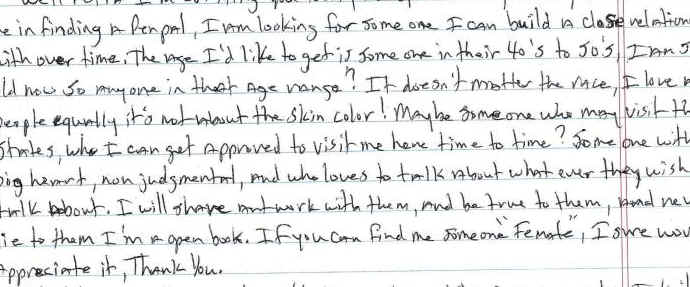 e in finding a Penpal, I am looking for some one I can build a close relation
with over time. The age I'd like to get is some one in their 40's to 50's, I am 5
ld now so anyone in that age range? It doesn't matter the race, I love
people equally it's not about the skin color! Maybe someone who may visit th
States, who I can get approved to visit me here time to time? Some one with
big heart, non judgmental, and who loves to talk about what ever they wish
talk about. I will share artwork with them, and be true to them, and nev
ie to them I'm a open book. If you can find me someone "Female", I sure wou
Appreciate it, Thank You.